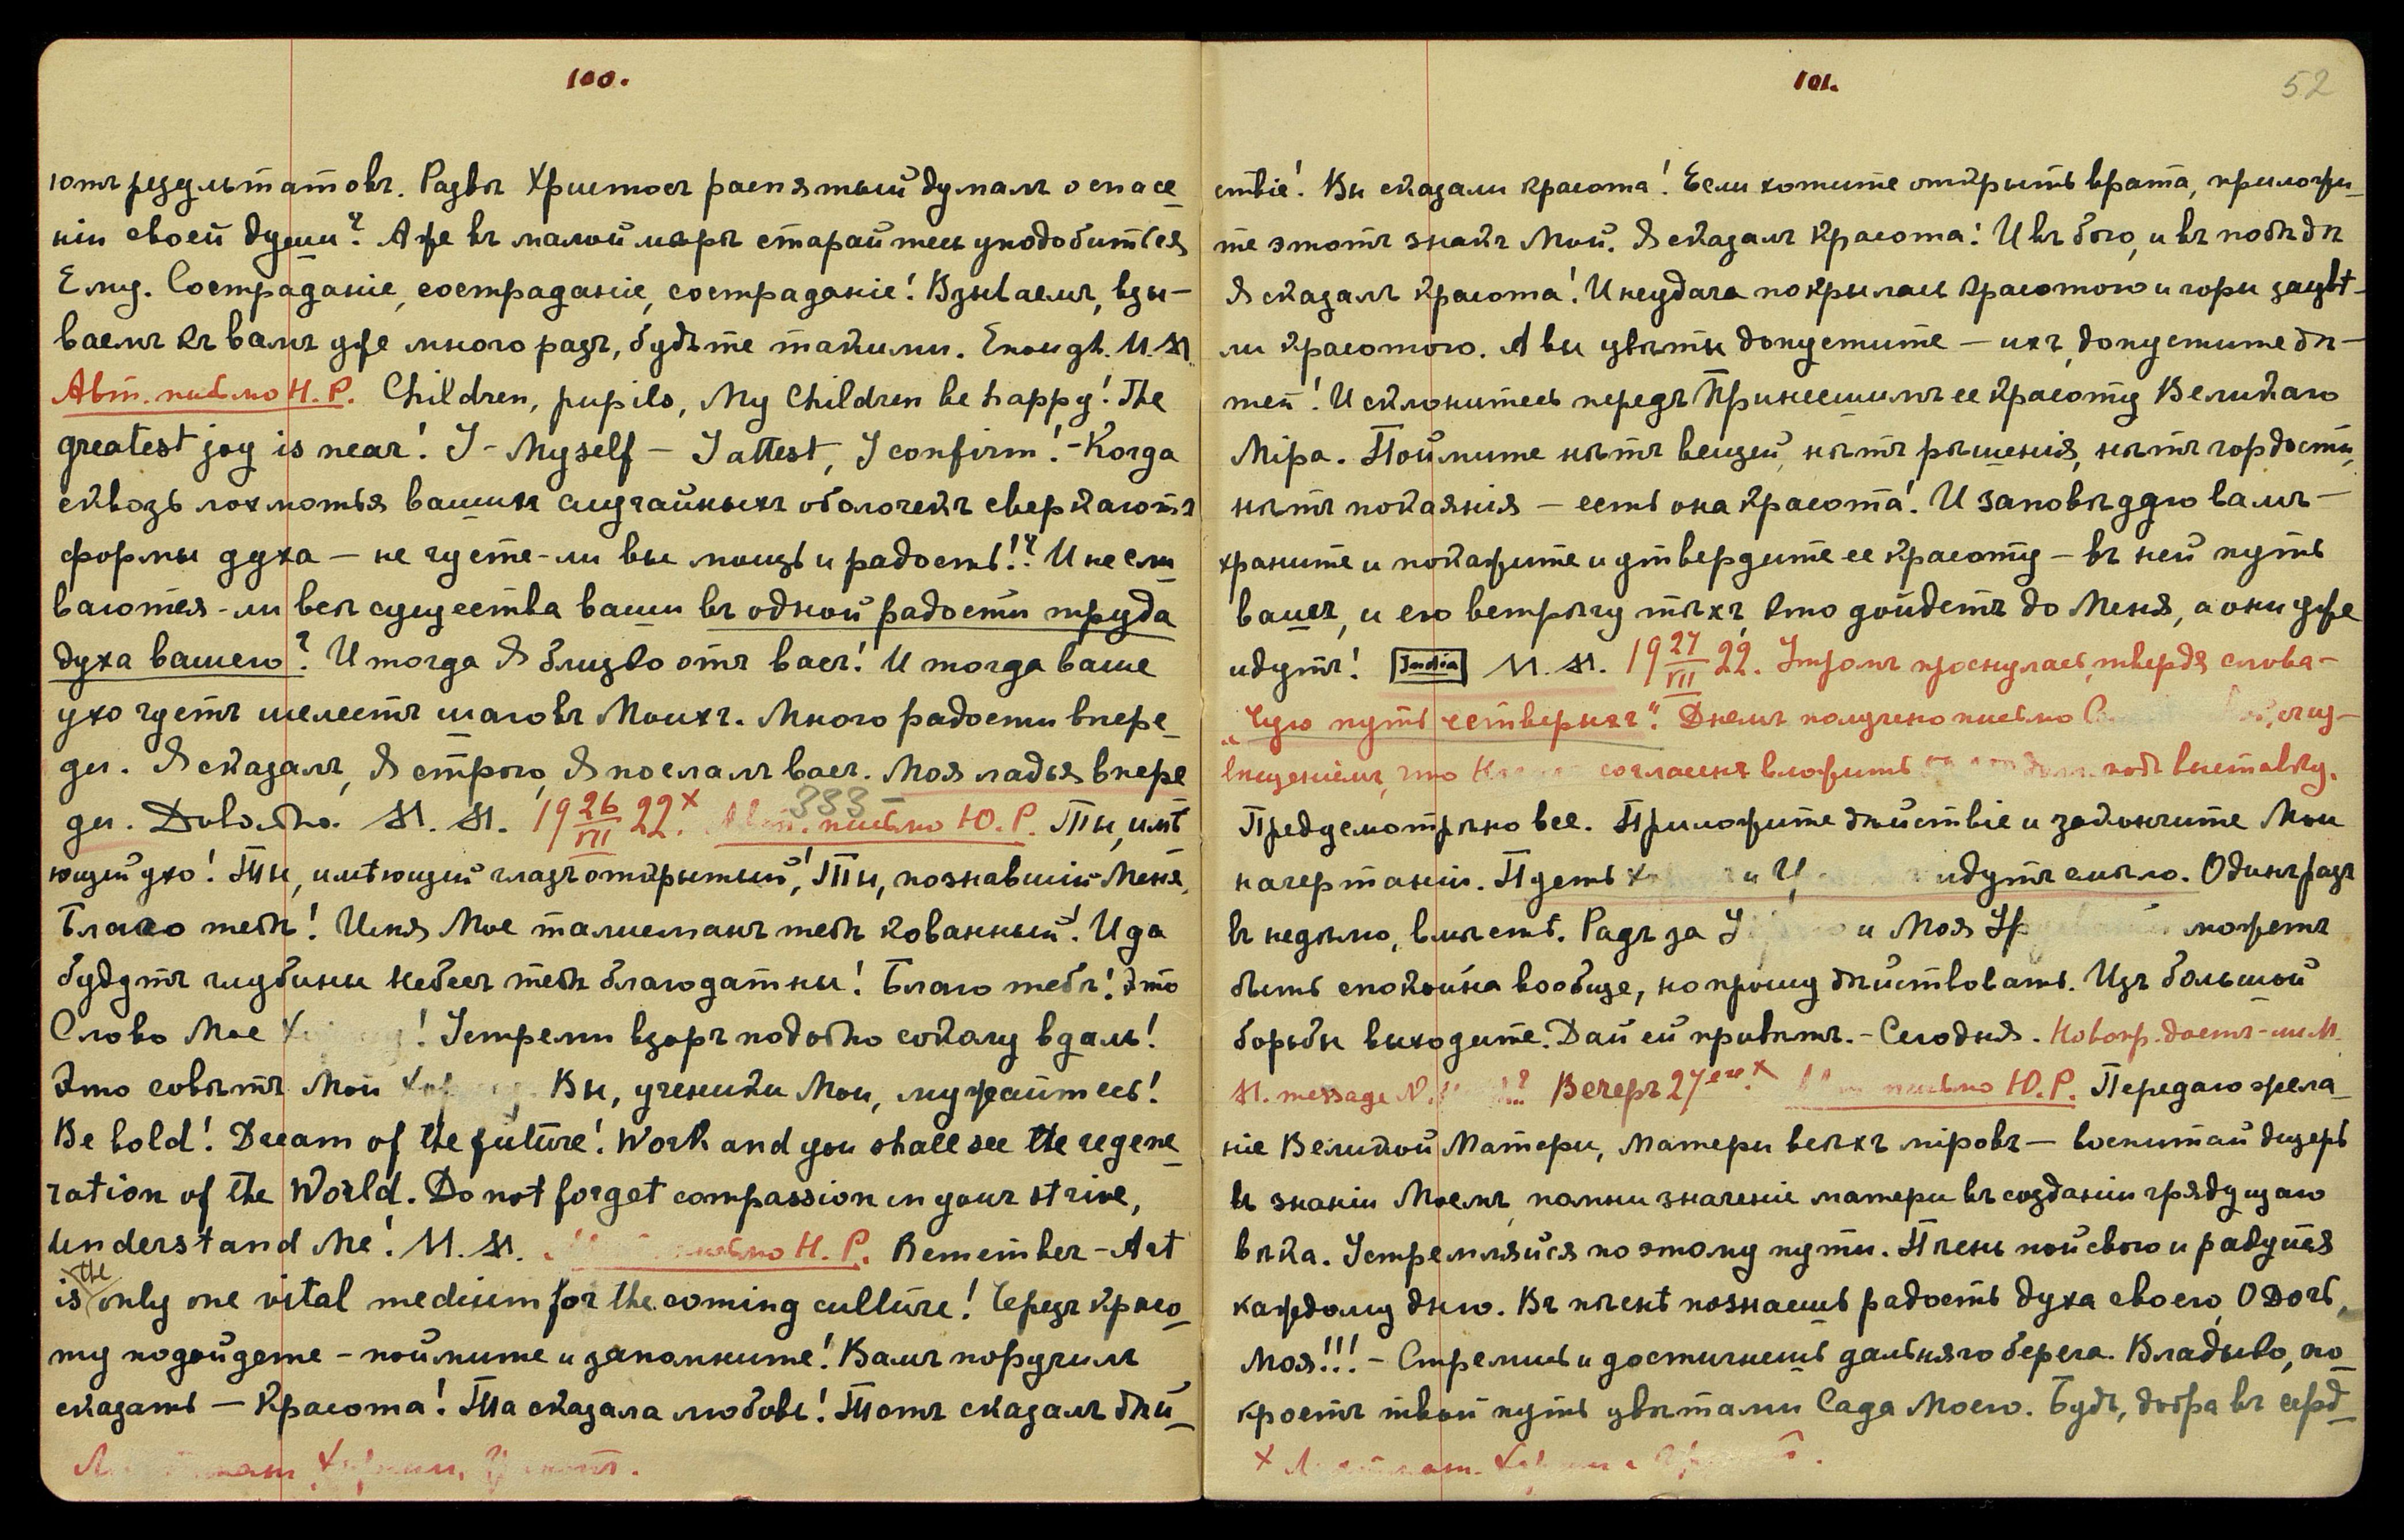 100.
ютъ результатовъ. Развѣ Христосъ распятый думалъ о спасе
ніи своей души? А же въ малой мѣрѣ старайтесь уподобиться
Ему. Состраданіе, состраданіе, состраданіе! Взываемъ, взы-
ваемъ къ вамъ уже много разъ, будьте такими. Enough. M. M
Авт. письмо Н. Р. Children, pupils, My Children be happy! The
greatest joy is near! I - Myself - I attest, I confirm! - Когда
сквозь лохмотья вашихъ случайныхъ оболочекъ сверкаютъ
формы духа — не чуете-ли вы мощь и радость!? И не сли
ваются-ли всѣ существа ваши въ одной радости труда
духа вашего? И тогда Я близко отъ васъ! И тогда ваше
ухо чуетъ шелестъ шаговъ Моихъ. Много радости впере
ди. Я сказалъ, Я строю, Я послалъ васъ. Моя ладья впере
ди. Довольно. M. M. 19 26/VII 22.x 333 Авт. письмо Ю. Р. Ты, имѣ
ющій ухо! Ты, имѣющій глазъ открытый! Ты, познавшій Меня,
Благо тебѣ! Имя Мое талисманъ тебѣ кованный! И да
будутъ глубины Небесъ тебѣ благодатны! Благо тебѣ! Это
Слово Мое ! Устреми взоръ подобно соколу вдаль!
Это совѣтъ Мой Вы, ученики Мои, мужайтесь!
Be bold! Dream of the future! Work and you shall see the regene
ration of the World. Do not forget compassion in your strive,
Understand Me! M. M. письмо Н. Р. Remember - Art
is the only one vital medium for the coming culture! Черезъ красо
ту подойдете - поймите и запомните! Вамъ поручилъ
сказать — Красота! Та сказала любовь! Тотъ сказалъ дѣй
101.
52
ствіе! Вы сказали красота! Если хотите открыть врата, приложи
те этотъ знакъ Мой. Я сказалъ Красота! И въ бою, и въ побѣдѣ
Я сказалъ Красота! И неудача покрылась красотою и горы зацвѣ-
ли Красотою. А вы цвѣты допустите — ихъ, допустите дѣ-
тей! И склонитесь передъ Принесшимъ ее Красоту Великаго
Міра. Поймите нѣтъ вещей, нѣтъ рѣшенія, нѣтъ гордости,
нѣтъ покаянія — есть она Красота! И заповѣдую вамъ —
храните и покажите и утвердите ее Красоту — въ ней путь
вашъ, и ею встрѣчу тѣхъ, кто дойдетъ до Меня, а они уже
идутъ! India M. M. 19 27/VII 22. Утромъ проснулась, твердя слова -
„Чую путь четверыхъ". Днемъ получено письмо
вѣщеніемъ, что согласенъ вложить подъ выставку.
Предусмотрѣно все. Приложите дѣйствіе и закончите Мои
начертаніи. Пусть и идутъ смѣло. Одинъ разъ
въ недѣлю, вмѣстѣ. Радъ за и Моя можетъ
быть спокойна вообще, но прошу дѣйствовать. Изъ большой
борьбы выходите. Дай ей привѣтъ. - Сегодня. Новокр. дастъ-ли M.
M. message N. ? Вечеръ 27ого.x письмо Ю. Р. Передаю жела
ніе Великой Матери, Матери всѣхъ міровъ — воспитай дщерь
въ знаніи Моемъ, помни значеніе матери въ созданіи грядущаго
вѣка. Устремляйся по этому пути. Пѣснь пой свою и радуйся
каждому дню. Въ пѣснѣ познаешь радость духа своего, О Дочь,
Моя!!! - Стремись и достигнешь дальняго берега. Владыко, по
кроетъ твой путь цвѣтами Сада Моего. Будь, добра въ серд